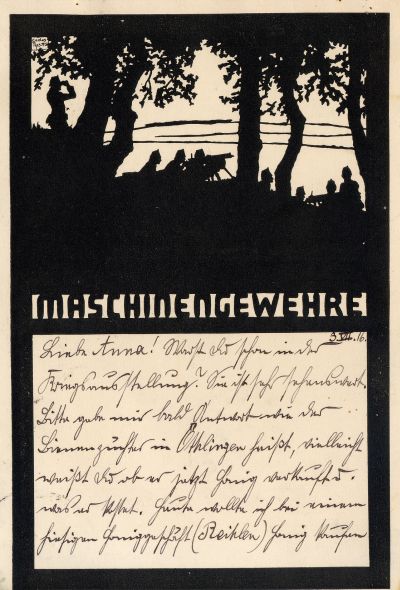 MASCHINENGEWEHRE
Liebe Anna! Warst Du schon in der
Kriegsausstellung? Sie ist sehr sehenswert.
Bitte gebe mir bald Antwort wie der
Bienenzüchter in Öthlingen heißt, vielleicht
weißt Du ob er jetzt Honig verkauft u.
was er kostet. Heute wollte ich bei einem
hiesigen Honiggeschäft (Reihlen) Honig kaufen